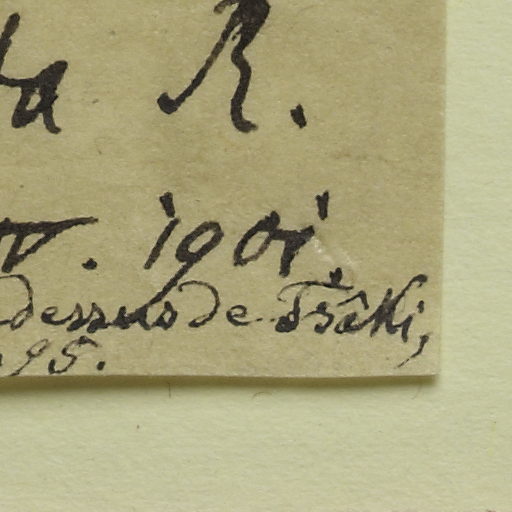 ta R.
IV. 1901.
dessus de Tsâki,
95.